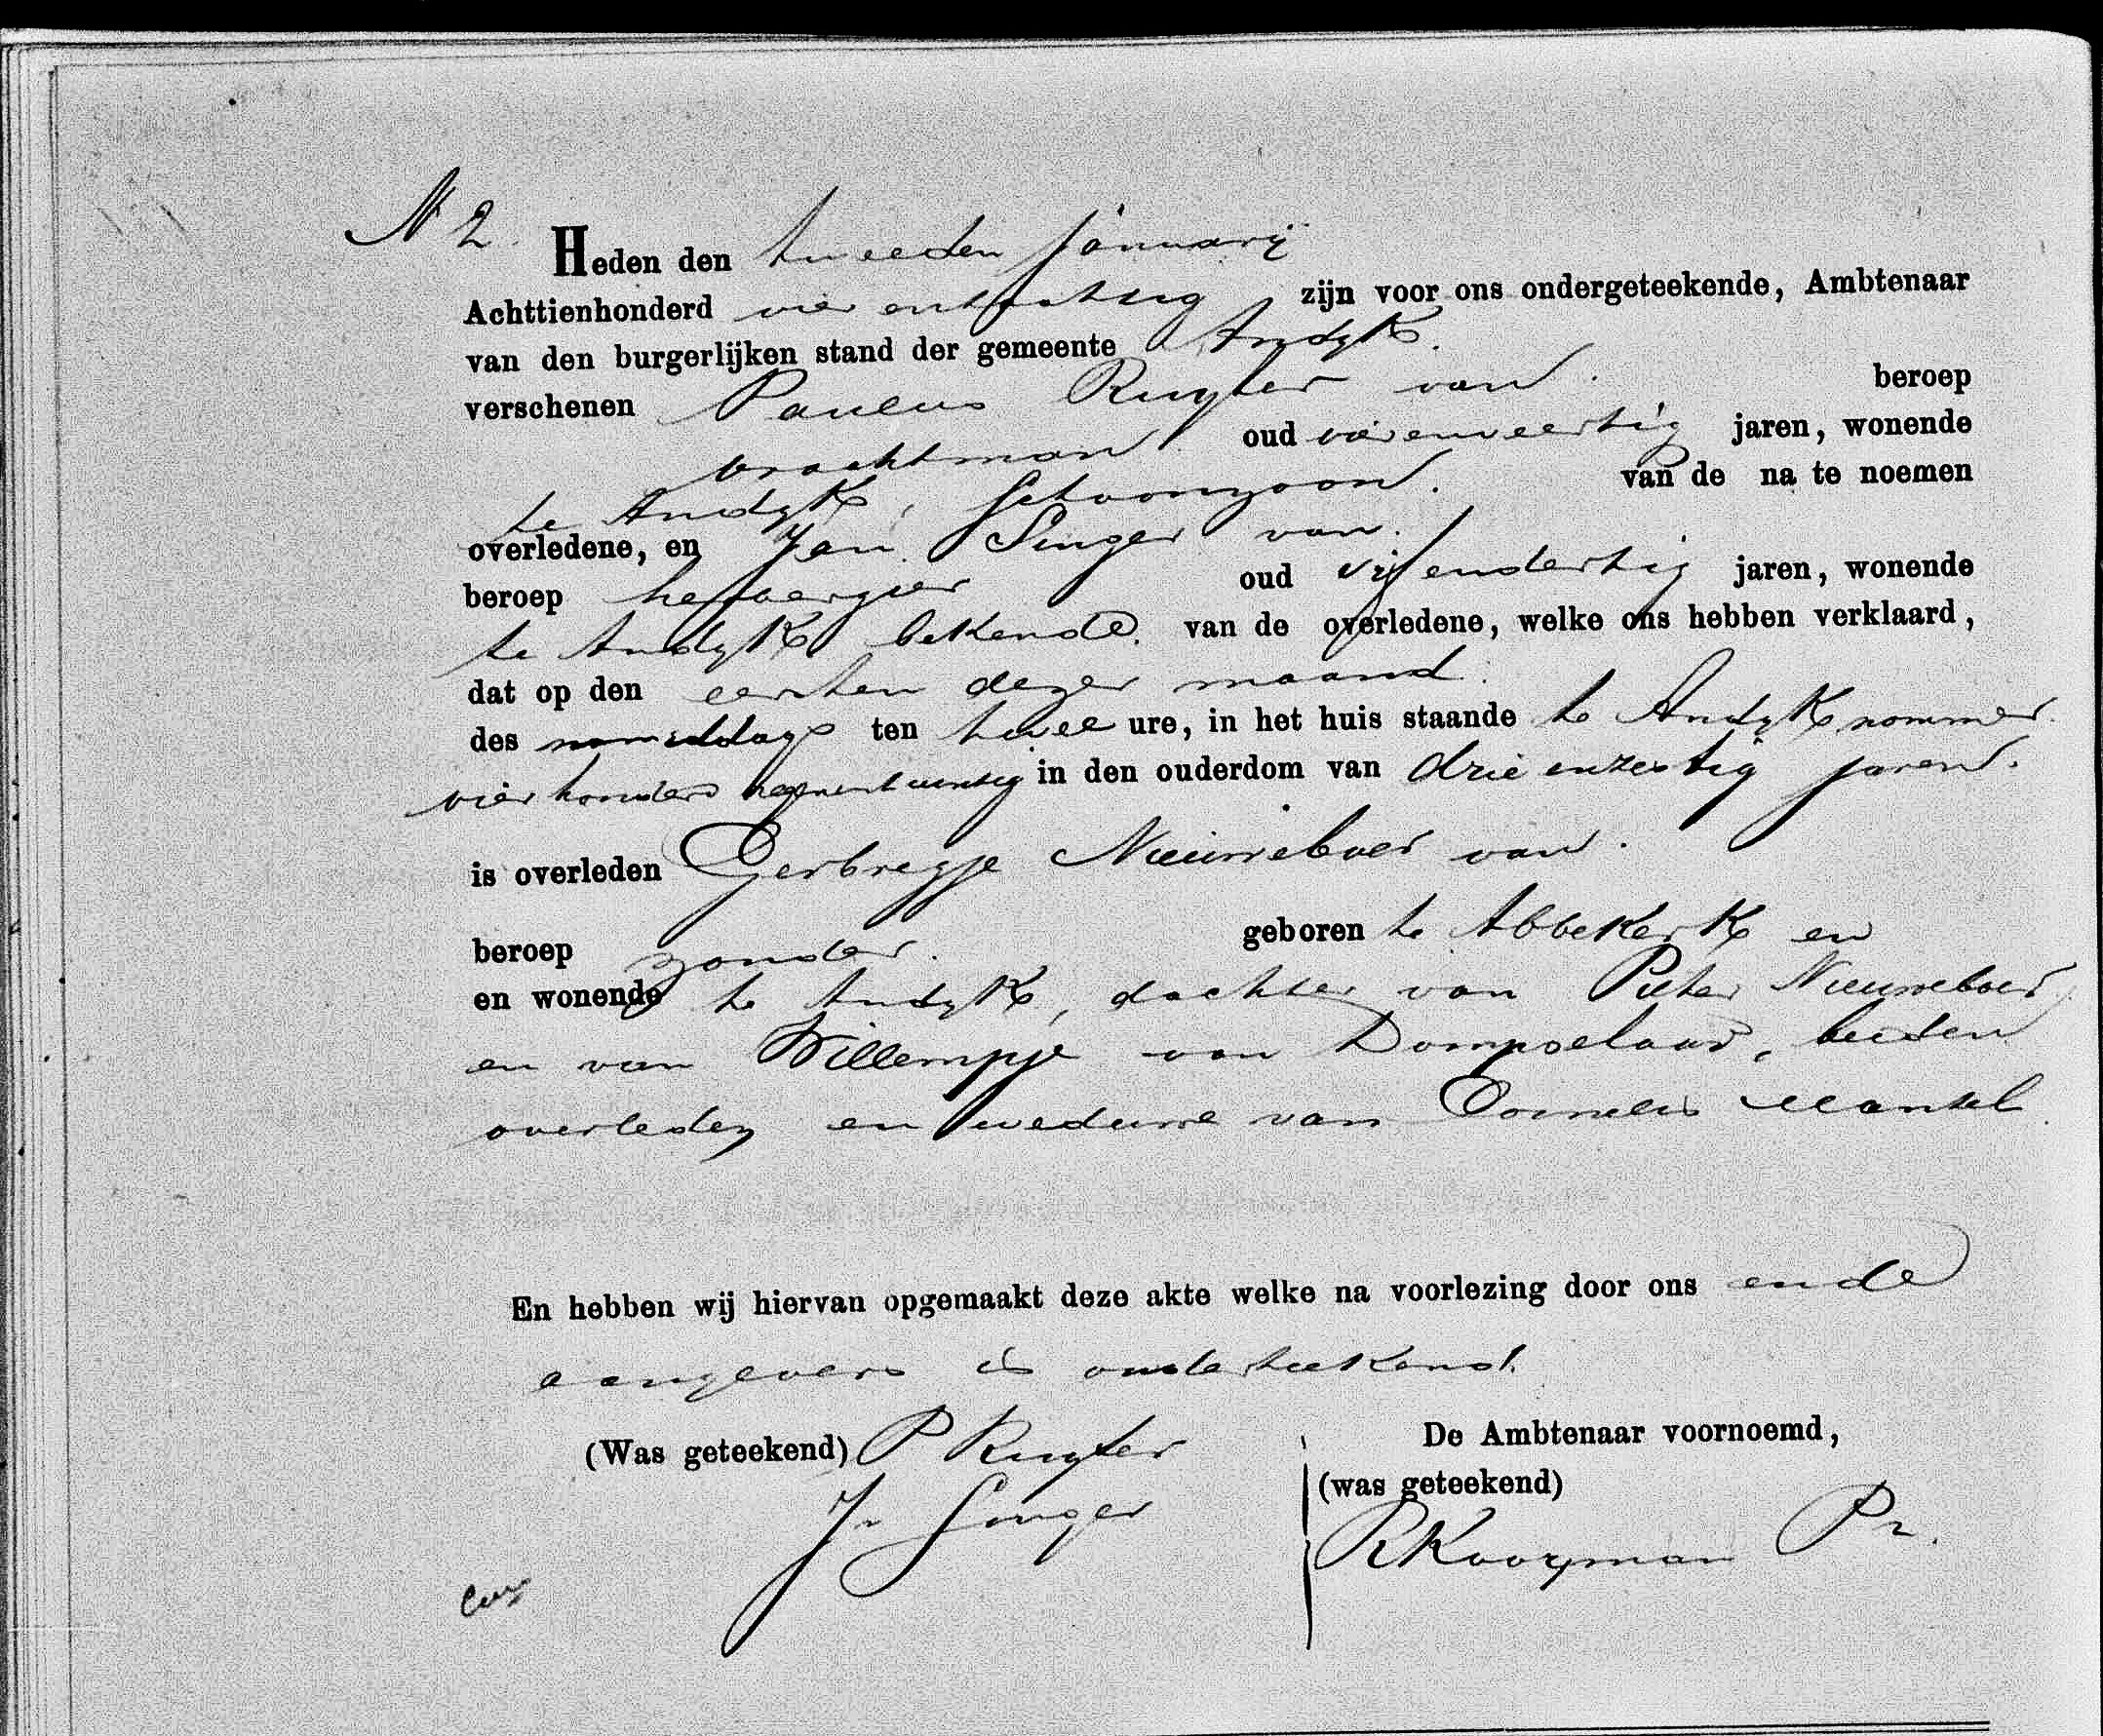 N 2. Heden den tweeden Januarij
Achttienhonderd vier en tachtig zijn voor ons ondergeteekende, Ambtenaar
van den burgerlijken stand der gemeente Andyk.
verschenen Paulus Ruyter van beroep
vrachtman oud vierenveertig jaren, wonende
te Andyk, schoonzoon. van de na te noemen
overledene, en Jan Singer van.
beroep herbergier oud vijfendertig jaren, wonende
te Andyk bekende. van de overledene, welke ons hebben verklaard,
dat op den eersten dezer maand.
des namiddags ten twee ure, in het huis staande te Andyk nommer
vierhonderd negenentwintig in den ouderdom van drie en zestig jaren.
is overleden Gerbregje Nieuweboer van.
beroep zonder. geboren te Abbekerk en
en wonende te Andyk, dochter van Pieter Nieuweboer
en van Willempje van Dompselaar, beiden
overleden en weduwe van Cornelis Mantel.
En hebben wij hiervan opgemaakt deze akte welke na voorlezing door ons en de
aangevers is onderteekend.
(Was geteekend) P Ruyter De Ambtenaar voornoemd,
Jn Singer (was geteekend)
P Kooyman Pz.